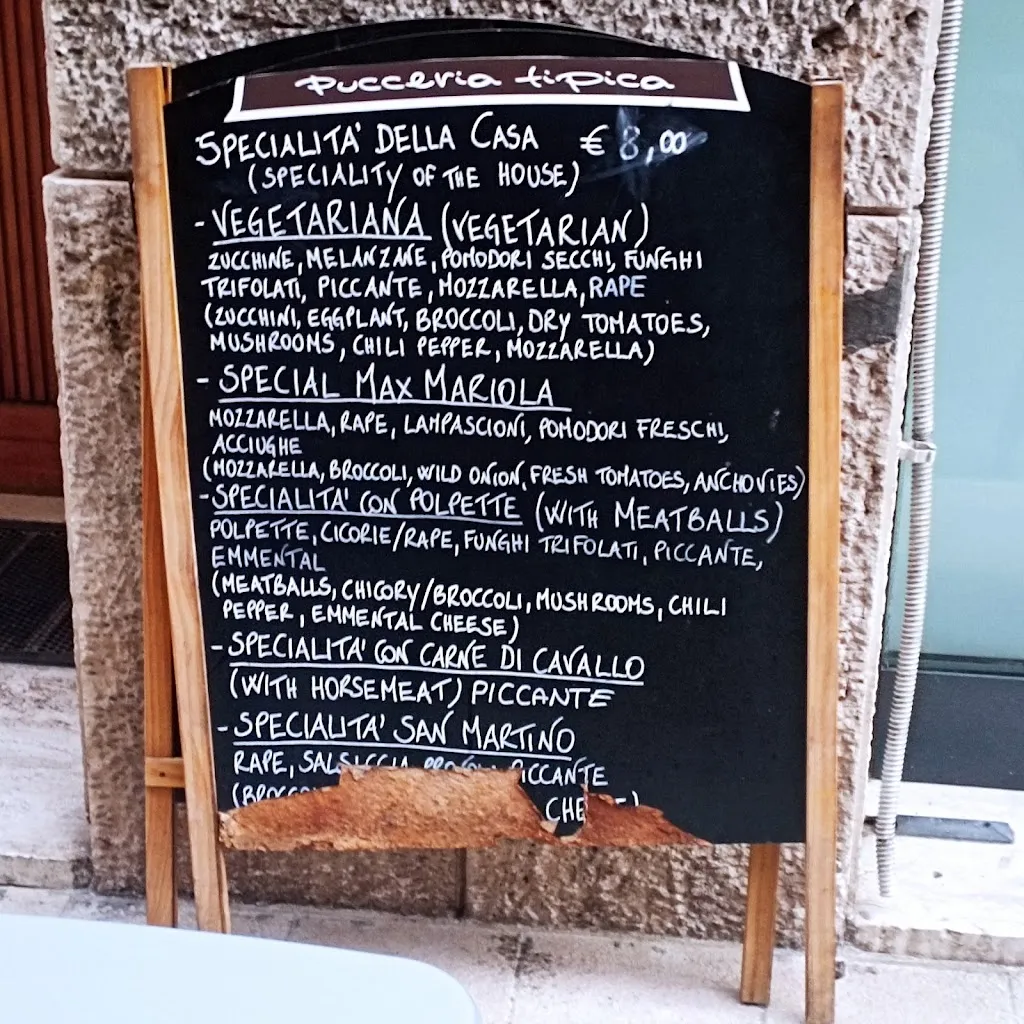 Pucceria tipica
SPECIALITA' DELLA CASA € 8,00
(SPECIALITY OF THE HOUSE)
- VEGETARIANA (VEGETARIAN)
ZUCCHINE, MELANZANE, POMODORI SECCHI, FUNGHI
TRIFOLATI, PICCANTE, MOZZARELLA, RAPE
(ZUCCHINI, EGGPLANT, BROCCOLI, DRY TOMATOES,
MUSHROOMS, CHILI PEPPER, MOZZARELLA)
- SPECIAL MAX MARIOLA
MOZZARELLA, RAPE, LAMPASCIONI, POMODORI FRESCHI,
ACCIUGHE
(MOZZARELLA, BROCCOLI, WILD ONION, FRESH TOMATOES, ANCHOVIES)
- SPECIALITA' CON POLPETTE (WITH MEATBALLS)
POLPETTE, CICORIE/RAPE, FUNGHI TRIFOLATI, PICCANTE,
EMMENTAL
(MEATBALLS, CHICORY/BROCCOLI, MUSHROOMS, CHILI
PEPPER, EMMENTAL CHEESE)
- SPECIALITA' CON CARNE DI CAVALLO
(WITH HORSEMEAT) PICCANTE
- SPECIALITA' SAN MARTINO
RAPE, SALSICCIA, PICCANTE